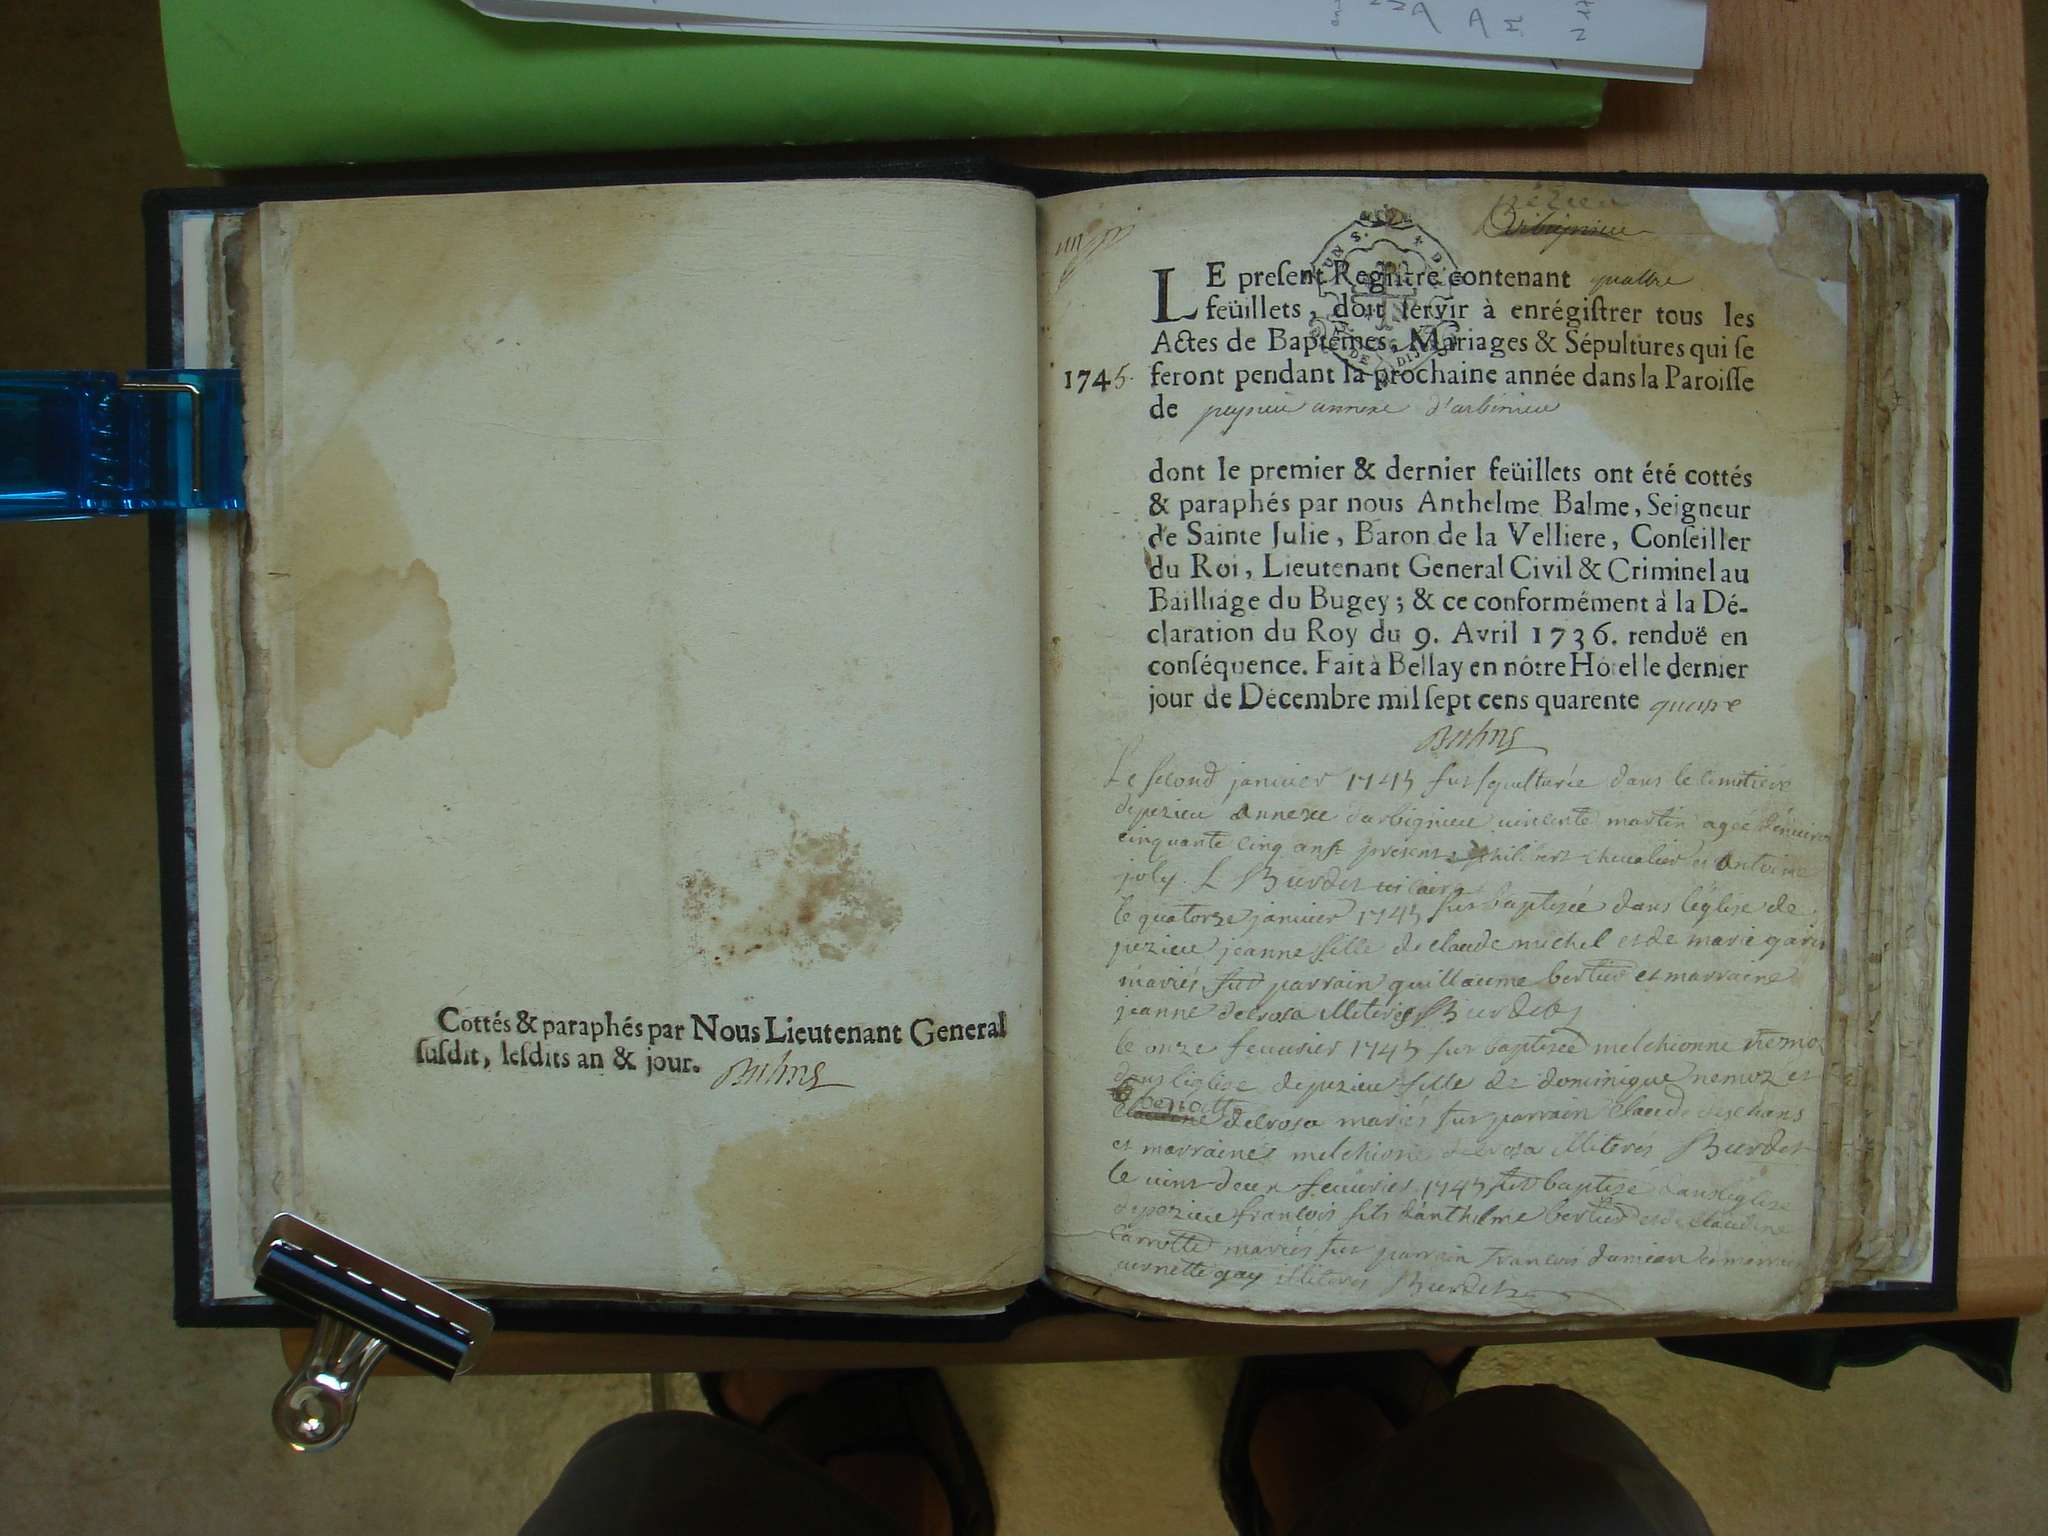 Cottés & paraphés par Nous Lieutenant General
ſuſdit, leſdits an & jour.
pezieu
Arbignieu
LE preſent Regiſtre contenant quattre
feüillets, doit ſervir à enrégiſtrer tous les
Actes de Baptêmes, Mariages & Sépultures qui ſe
1745. feront pendant la prochaine année dans la Paroiſſe
de peysieu annexe d'arbinieu
dont le premier & dernier feüillets ont été cottés
& paraphés par nous Anthelme Balme, Seigneur
de Sainte Julie, Baron de la Velliere, Conſeiller
du Roi, Lieutenant General Civil & Criminel au
Bailliage du Bugey ; & ce conformément à la Dé-
claration du Roy du 9. Avril 1736. renduë en
conſéquence. Fait à Bellay en nôtre Hôtel le dernier
jour de Décembre mil ſept cens quarente quatre
Le second janvier 1745 fut sepulturée dans le cimetiere
de pezieu annexe d'arbignieu vincente martin agée d'environ
cinquante cinq ans present philibert chevalier et antoine
joly. Burdet vicaire
le quatorze janvier 1745 fut baptisée dans l'église de
pezieu jeanne fille de claude michel et de marie garin
mariés fut parrain guillaume bertier et marraine
jeanne delrosa illiteres Burdet
le onze feuvrier 1745 fut baptisée melchionne nemoz
dans l'eglise de pezieu fille de dominique nemoz et
benoitte
claudine delrosa mariés fut parrain claude deschans
et marraine melchionne delrosa illiteres Burdet
le vint deux feuvrier 1745 fut baptisé dans l'eglise
de pezieu francois fils d'anthelme bertier et de claudine
Carrotte mariés fut parrain francois dumian et marraine
vernette gay illiteres Burdet